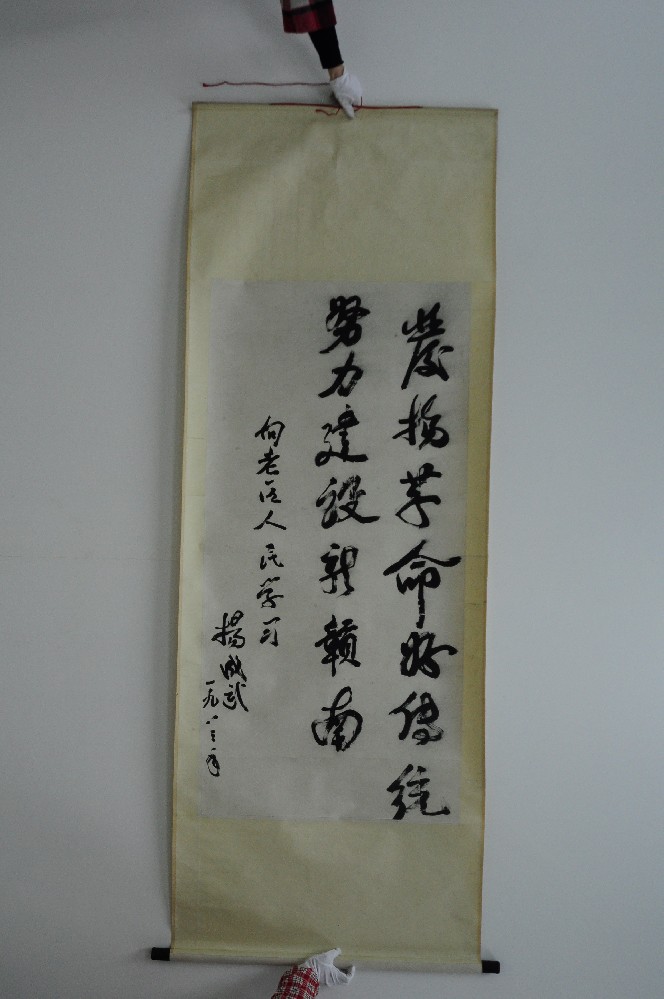 發揚革命好傳統
努力建設新贛南
向老区人民学习
楊成武
一九八三年